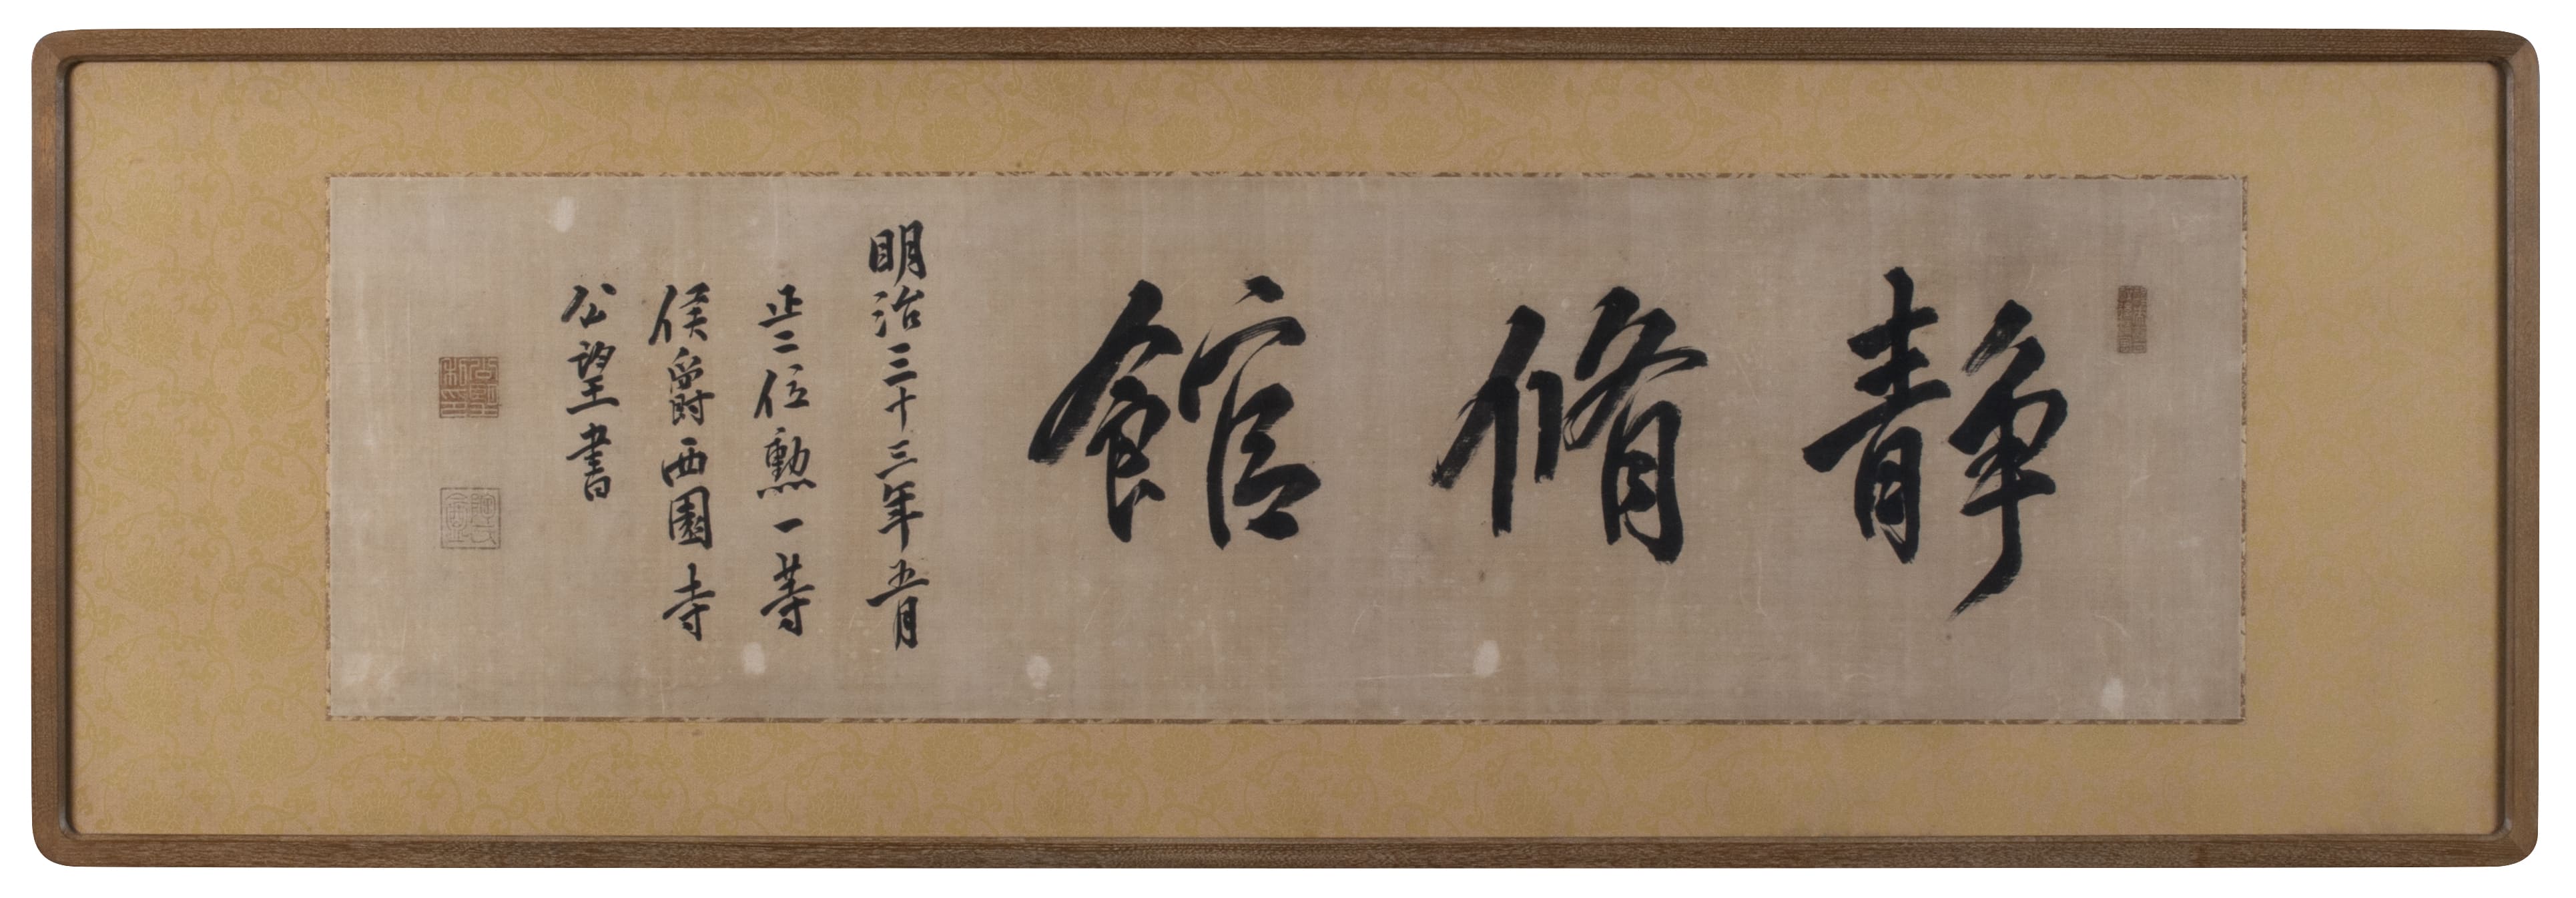 静脩館
明治三十三年五月
正二位勲一等
侯爵西園寺
公望書